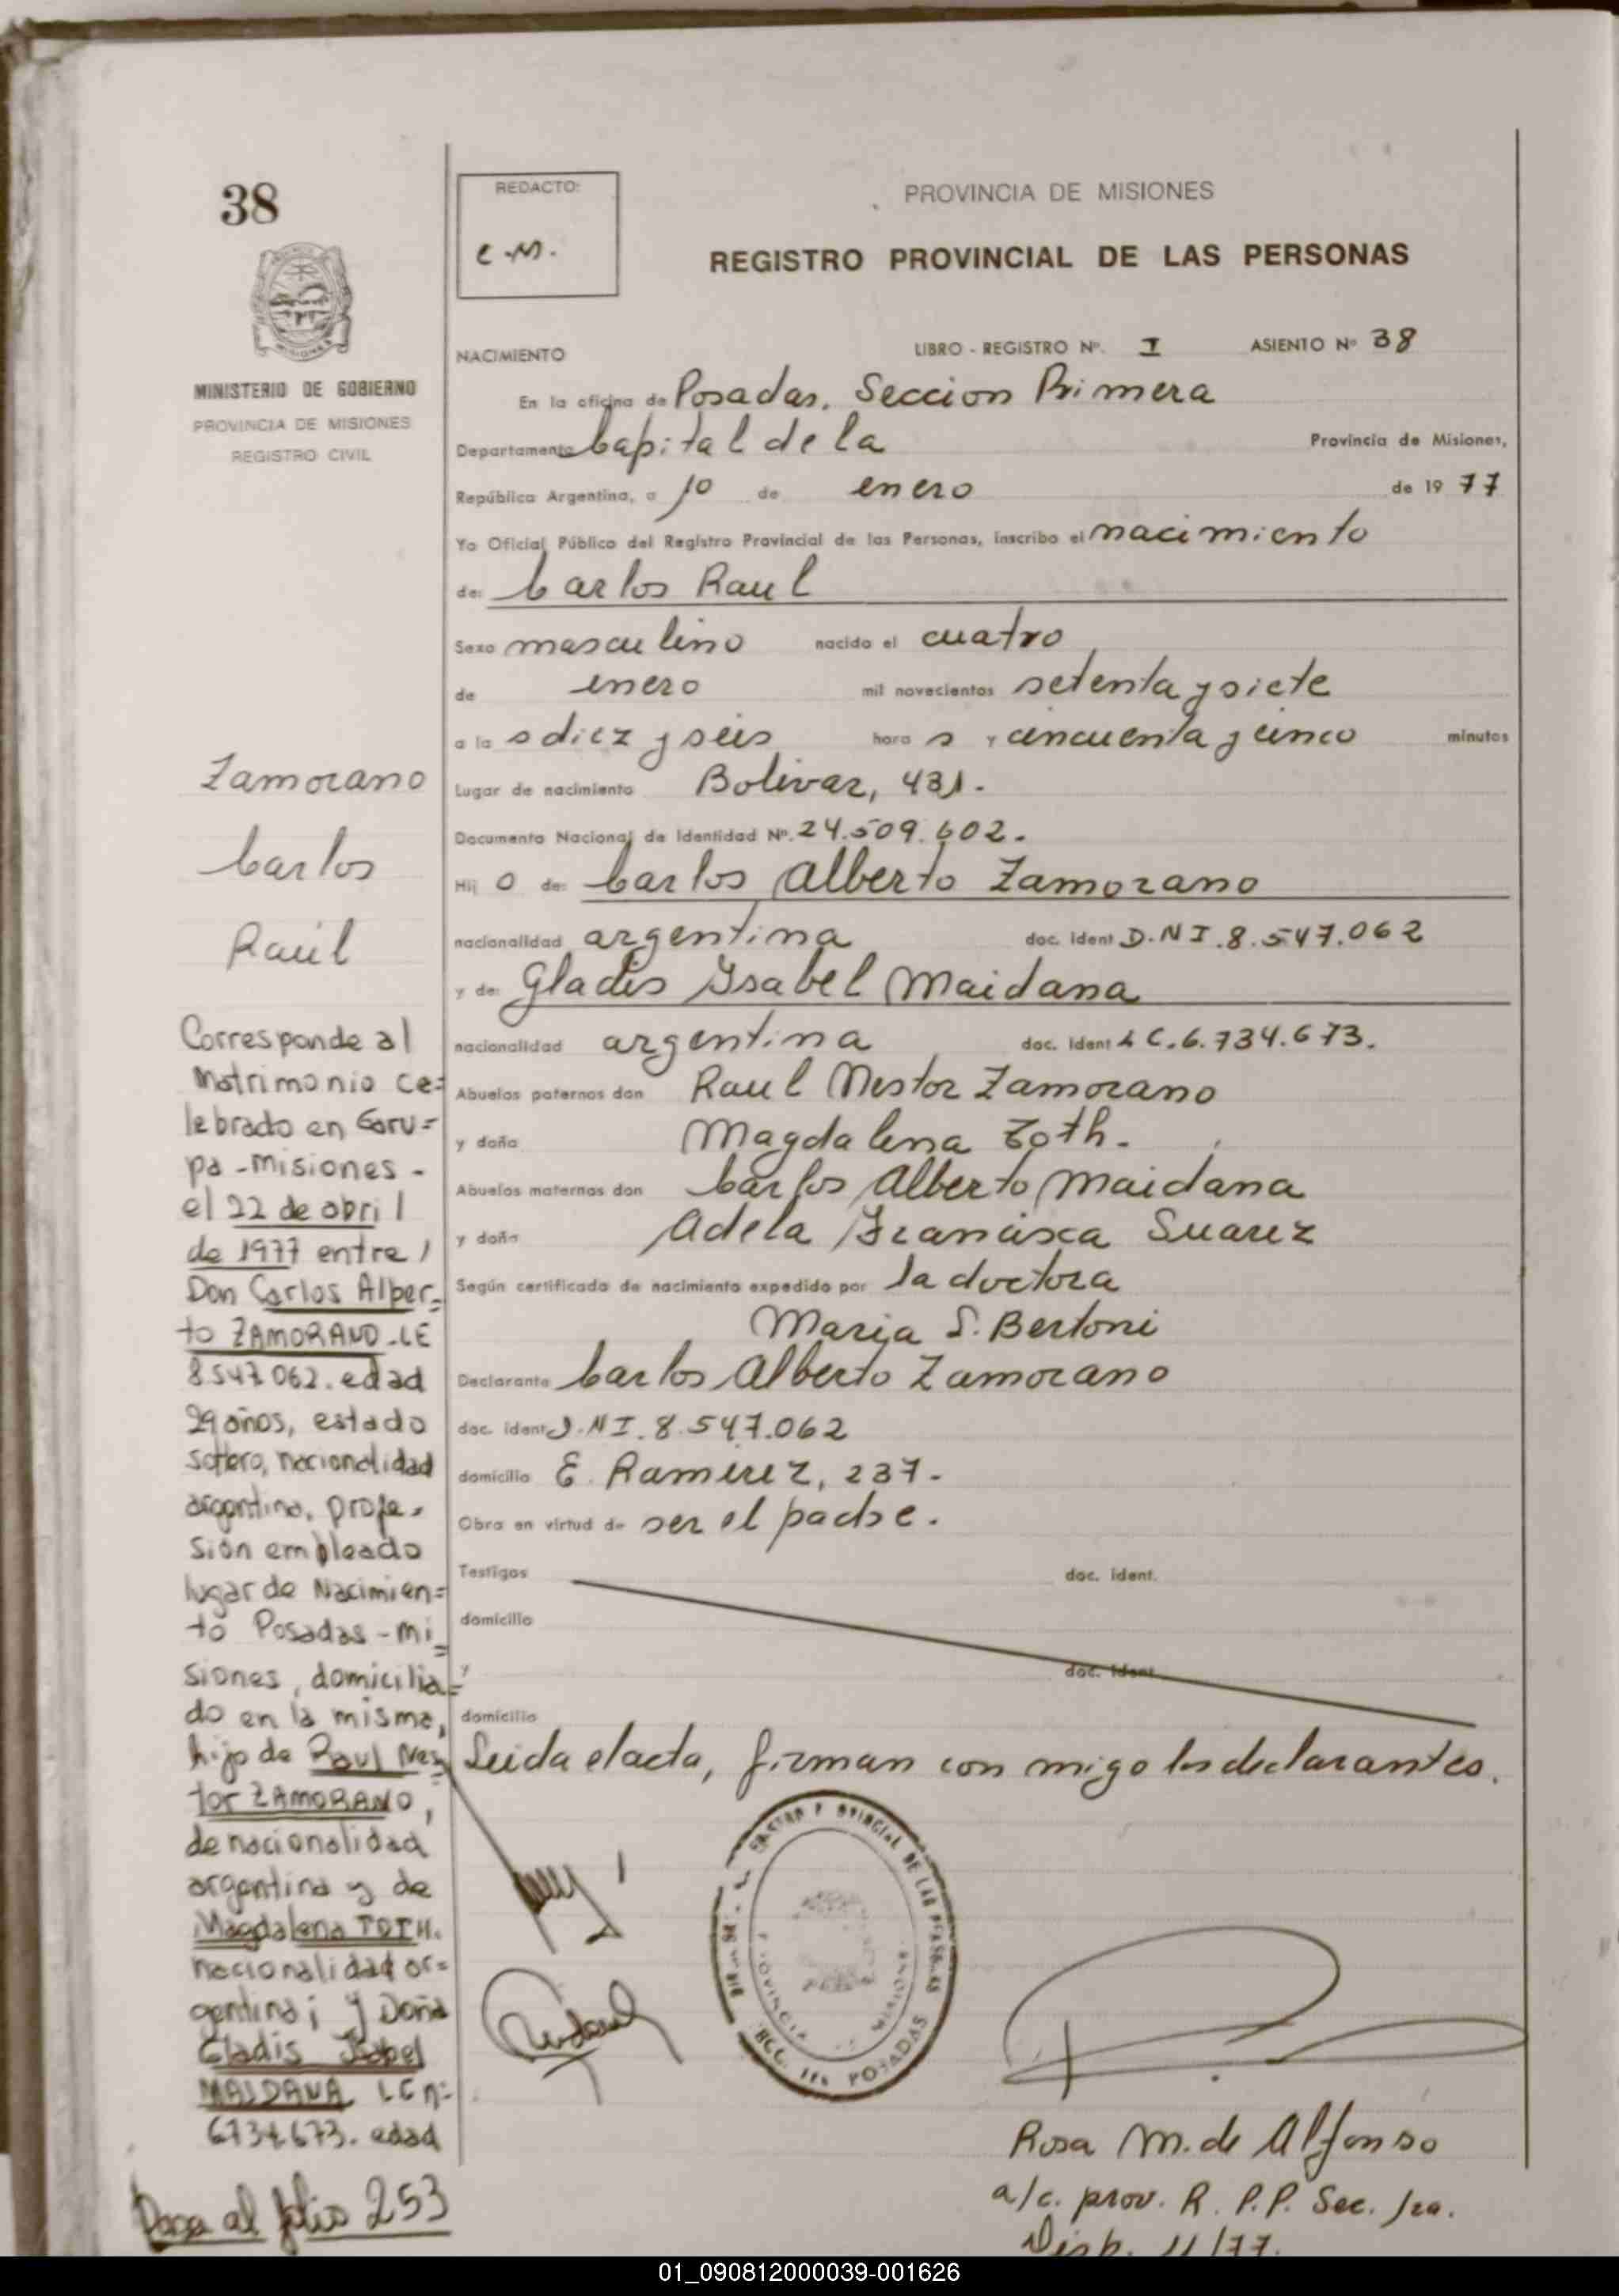 38
REDACTO:
e.M.
PROVINCIA DE MISIONES
REGISTRO PROVINCIAL DE LAS PERSONAS
MINISTERIO DE GOBIERNO
PROVINCIA DE MISIONES
REGISTRO CIVIL
NACIMIENTO LIBRO - REGISTRO Nº. I ASIENTO Nº 38
En la oficina de Posadas. Seccion Primera
Departamento Capital de la Provincia de Misiones,
República Argentina, a 10 de enero de 1977
Yo Oficial Público del Registro Provincial de las Personas, inscribo el nacimiento
de: Carlos Raul
Sexo masculino nacido el cuatro
de enero mil novecientos setenta y siete
a la s diez y seis hora s y cincuenta y cinco minutos
Lugar de nacimiento Bolivar, 431.
Documento Nacional de Identidad Nº. 24.509.602.
Hij o de: Carlos Alberto Zamorano
nacionalidad argentina doc. ident D.N I.8.547.062
y de: Gladis Isabel Maidana
nacionalidad argentina doc. ident L C.6.734.673.
Abuelos paternos don Raul Nestor Zamorano
y doña Magdalena Toth.
Abuelos maternos don Carlos Alberto Maidana
y doña Adela Francisca Suarez
Según certificado de nacimiento expedido por la doctora
Maria S. Bertoni
Declarante Carlos Alberto Zamorano
doc. ident D.N I.8.547.062
domicilio E. Ramirez, 237.
Obra en virtud de ser el padre.
Testigos doc. ident.
domicilio
y doc. ident
domicilio
Leida el acta, firman con migo los declarantes.
Zamorano
Carlos
Raúl
Corresponde al
Matrimonio ce=
lebrado en Garu=
pa - Misiones -
el 22 de abril
de 1977 entre /
Don Carlos Alber=
to ZAMORANO - LE
8547062. edad
29 años, estado
soltero, nacionalidad
argentina, profe=
sión empleado
lugar de Nacimien=
to Posadas - Mi=
siones, domicilia=
do en la misma,
hijo de Raul Nes=
tor ZAMORANO,
de nacionalidad
argentina y de
Magdalena TOTH.
nacionalidad ar=
gentina; y Doña
Gladis Isabel
MAIDANA LC nº
6734673. edad
Pasa al folio 253
PROVINCIAL DE LAS PERSONAS
PROVINCIA MISIONES
SECC. 1ra POSADAS
Rosa M. de Alfonso
a/c. prov. R. P.P. Sec. 1ra.
Disp. 11/77.
01_090812000039-001626